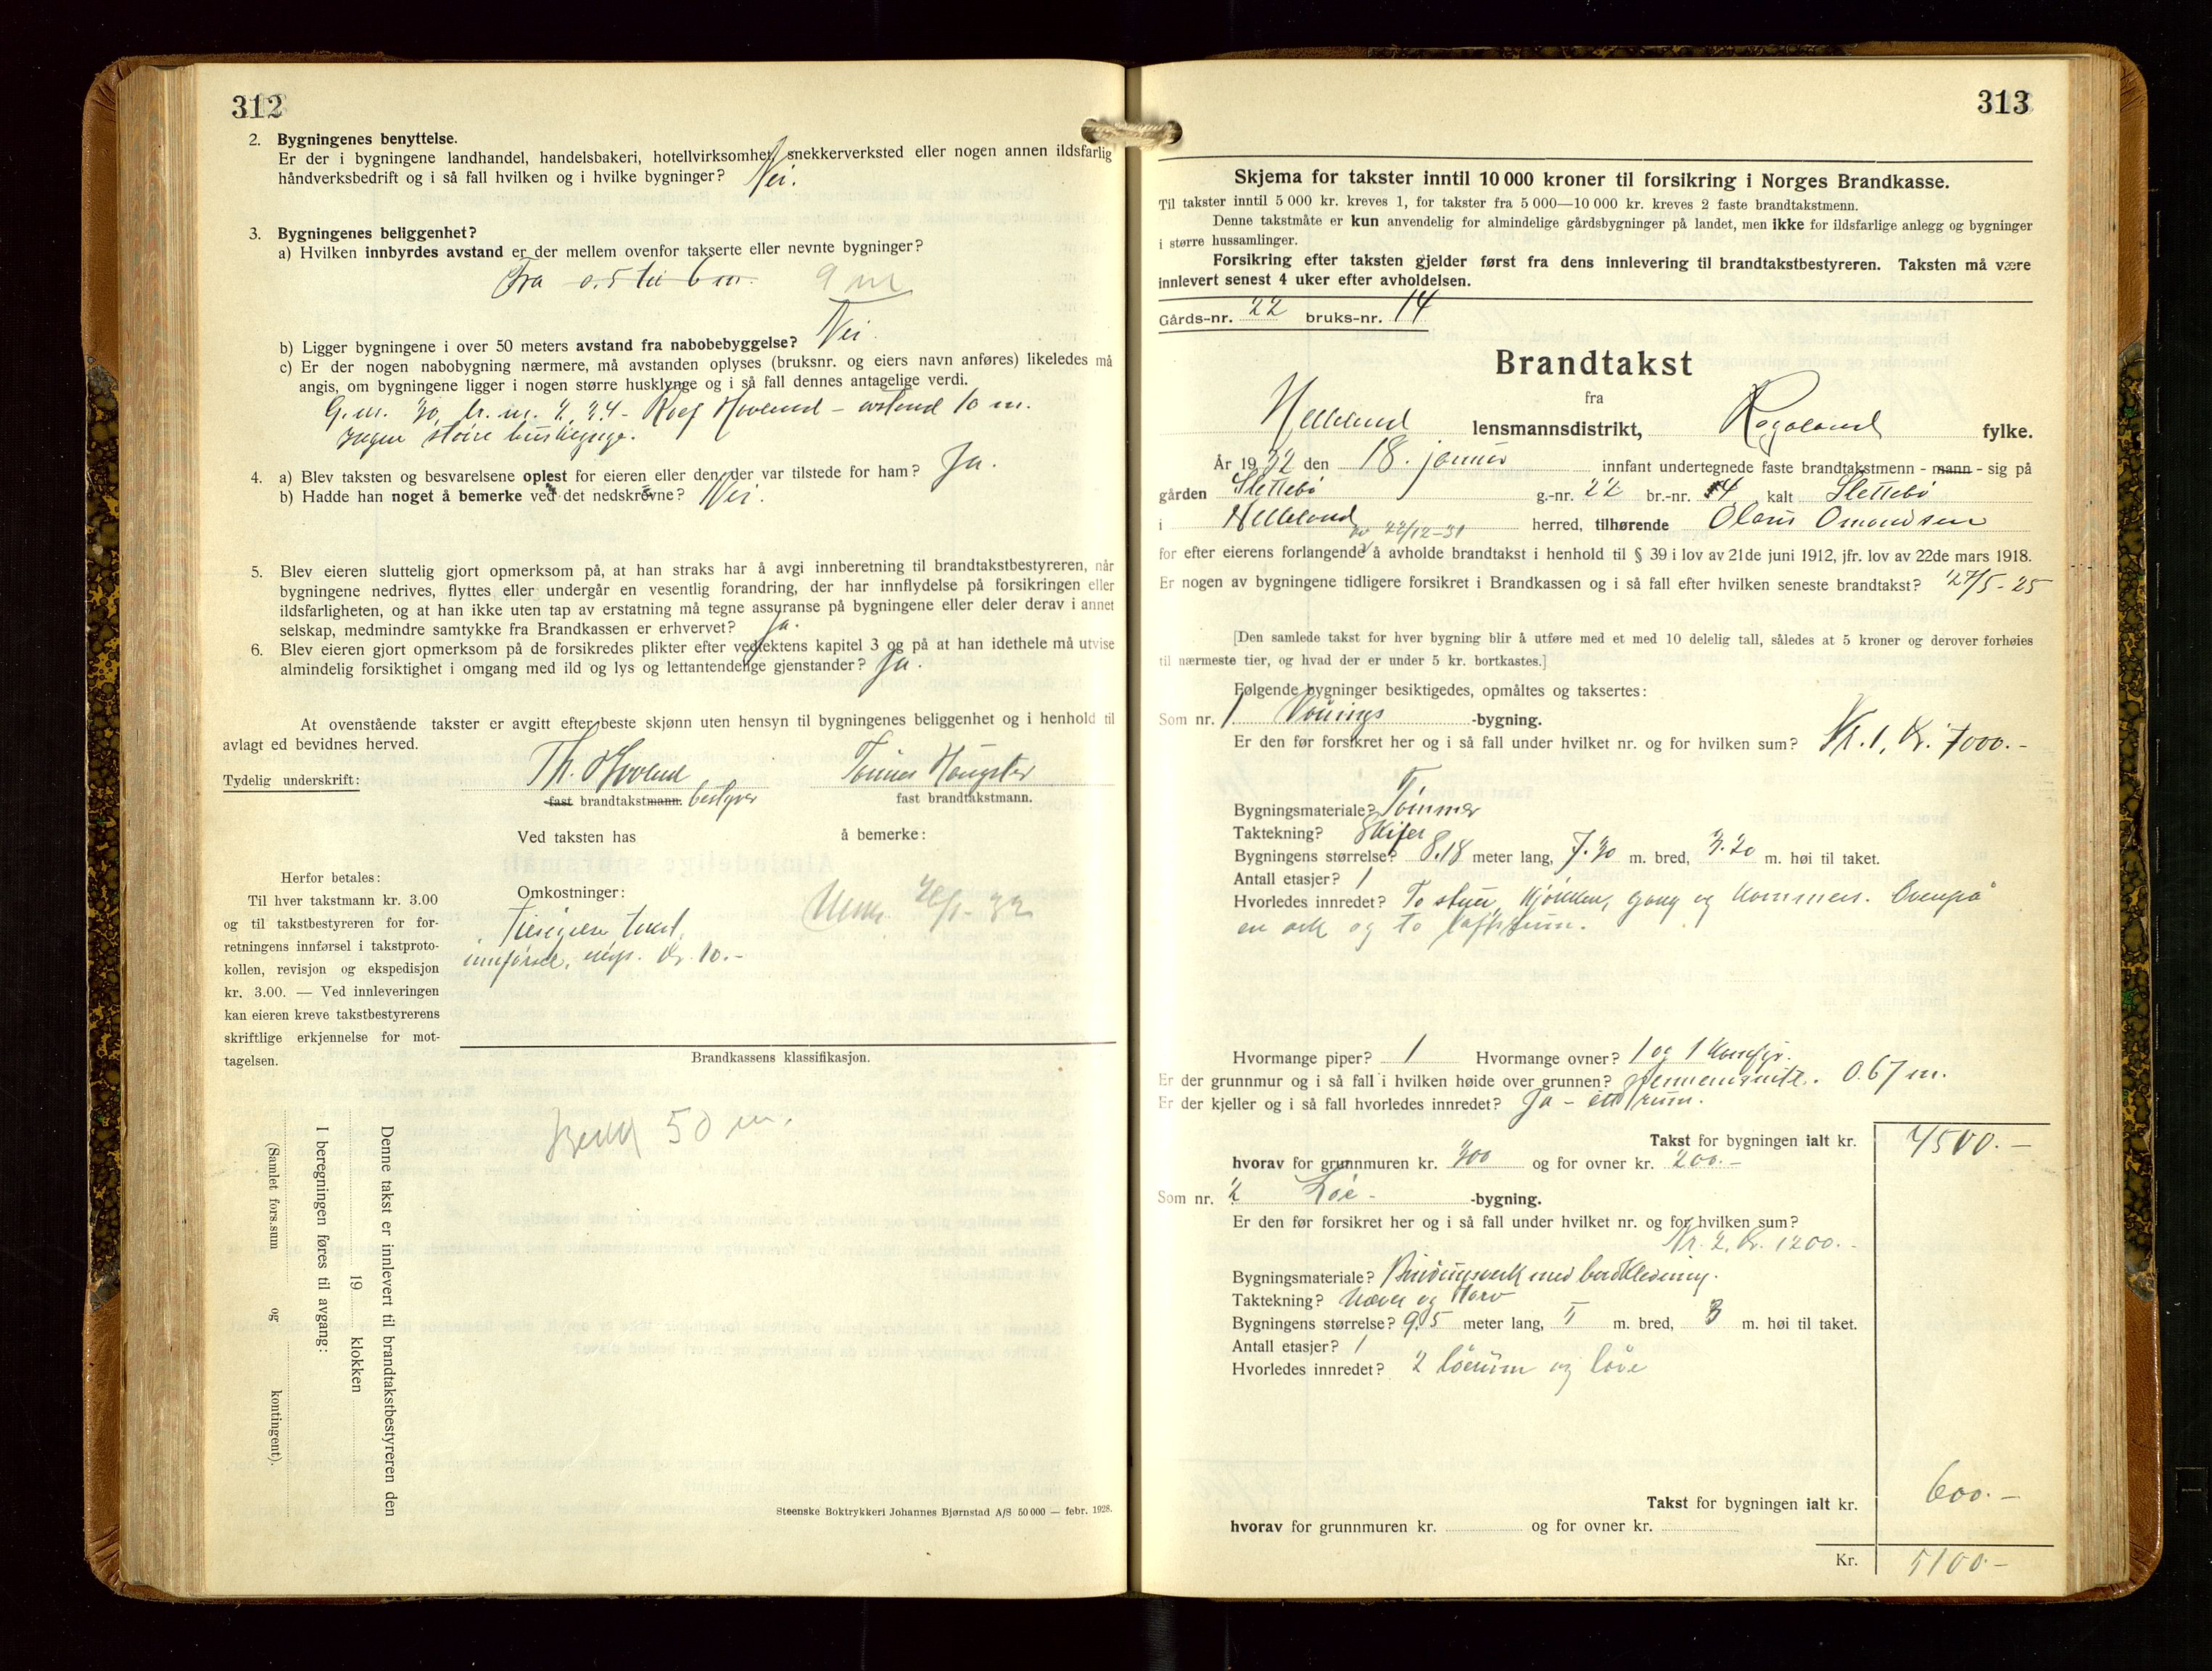 312
2. Bygningenes benyttelse.
Er der i bygningene landhandel, handelsbakeri, hotellvirksomhet, snekkerverksted eller nogen annen ildsfarlig
håndverksbedrift og i så fall hvilken og i hvilke bygninger? Nei.
3. Bygningenes beliggenhet?
a) Hvilken innbyrdes avstand er der mellem ovenfor takserte eller nevnte bygninger?
Fra 0.5 til 6 m. 9 m
b) Ligger bygningene i over 50 meters avstand fra nabobebyggelse? Nei.
c) Er der nogen nabobygning nærmere, må avstanden oplyses (bruksnr. og eiers navn anføres) likeledes må
angis, om bygningene ligger i nogen større husklynge og i så fall dennes antagelige verdi.
Hovland - avstand 10 m.
Ingen større
4. a) Blev taksten og besvarelsene oplest for eieren eller den, der var tilstede for ham? Ja.
b) Hadde han noget å bemerke ved det nedskrevne? Nei.
5. Blev eieren sluttelig gjort opmerksom på, at han straks har å avgi innberetning til brandtakstbestyreren, når
bygningene nedrives, flyttes eller undergår en vesentlig forandring, der har innflydelse på forsikringen eller
ildsfarligheten, og at han ikke uten tap av erstatning må tegne assuranse på bygningene eller deler derav i annet
selskap, medmindre samtykke fra Brandkassen er erhvervet? Ja.
6. Blev eieren gjort opmerksom på de forsikredes plikter efter vedtektens kapitel 3 og på at han idethele må utvise
almindelig forsiktighet i omgang med ild og lys og lettantendelige gjenstander? Ja.
At ovenstående takster er avgitt efter beste skjønn uten hensyn til bygningenes beliggenhet og i henhold til
avlagt ed bevidnes herved.
Tydelig underskrift: Th. Hovland
fast brandtakstmann. bestyrer fast brandtakstmann.
Ved taksten has å bemerke:
Herfor betales:
Til hver takstmann kr. 3.00
og til takstbestyreren for for-
retningens innførsel i takstproto-
kollen, revisjon og ekspedisjon
kr. 3.00. — Ved innleveringen
kan eieren kreve takstbestyrerens
skriftlige erkjennelse for mot-
tagelsen.
Omkostninger:
takst,
innførsel, Kr. 10.-
Brandkassens klassifikasjon.
50 m.
Denne takst er innlevert til brandtakstbestyreren den
19 klokken
I beregningen føres til avgang:
(Samlet fors.sum og kontingent).
Steenske Boktrykkeri Johannes Bjørnstad A/S 50 000 — febr. 1928.
313
Skjema for takster inntil 10 000 kroner til forsikring i Norges Brandkasse.
Til takster inntil 5 000 kr. kreves 1, for takster fra 5 000—10 000 kr. kreves 2 faste brandtakstmenn.
Denne takstmåte er kun anvendelig for almindelige gårdsbygninger på landet, men ikke for ildsfarlige anlegg og bygninger
i større hussamlinger.
Forsikring efter taksten gjelder først fra dens innlevering til brandtakstbestyreren. Taksten må være
innlevert senest 4 uker efter avholdelsen.
Gårds-nr. 22 bruks-nr. 14
Brandtakst
fra
Helleland lensmannsdistrikt, Rogaland fylke.
År 1932 den 18. januar innfant undertegnede faste brandtakstmenn - mann - sig på
gården Slettebø g.-nr. 22 br.-nr. 14 kalt Slettebø
i Helleland herred, tilhørende Olaus Omundsen
av 22/12-31
for efter eierens forlangende å avholde brandtakst i henhold til § 39 i lov av 21de juni 1912, jfr. lov av 22de mars 1918.
Er nogen av bygningene tidligere forsikret i Brandkassen og i så fall efter hvilken seneste brandtakst? 27/5-25
[Den samlede takst for hver bygning blir å utføre med et med 10 delelig tall, således at 5 kroner og derover forhøies
til nærmeste tier, og hvad der er under 5 kr. bortkastes.]
Følgende bygninger besiktigedes, opmåltes og taksertes:
Som nr. 1 Vånings -bygning.
Er den før forsikret her og i så fall under hvilket nr. og for hvilken sum? Nr. 1, Kr. 7000.-
Bygningsmateriale? Tømmer
Taktekning? Skifer
Bygningens størrelse? 8.18 meter lang, 7.30 m. bred, 3.20 m. høi til taket.
Antall etasjer? 1
Hvorledes innredet? To stuer, kjøkken, gang og kammers. Ovenpå
en ark og to loftsrum.
Hvormange piper? 1 Hvormange ovner? 1 og 1 komfyr.
Er der grunnmur og i så fall i hvilken høide over grunnen? gjennemsnitl. 0.67 m.
Er der kjeller og i så fall hvorledes innredet? Ja - ett rum.
Takst for bygningen ialt kr. 4500.-
hvorav for grunnmuren kr. 300 og for ovner kr. 200.-
Som nr. 2 Løe- -bygning.
Er den før forsikret her og i så fall under hvilket nr. og for hvilken sum?
Nr. 2, Kr. 1200.-
Bygningsmateriale? Bindingsverk med bordkledning.
Taktekning? Næver og torv
Bygningens størrelse? 9.5 meter lang, 5 m. bred, 3 m. høi til taket.
Antall etasjer? 1
Hvorledes innredet? 2 løerum og løve
Takst for bygningen ialt kr. 600.-
hvorav for grunnmuren kr. og for ovner kr.
Kr. 5100.-